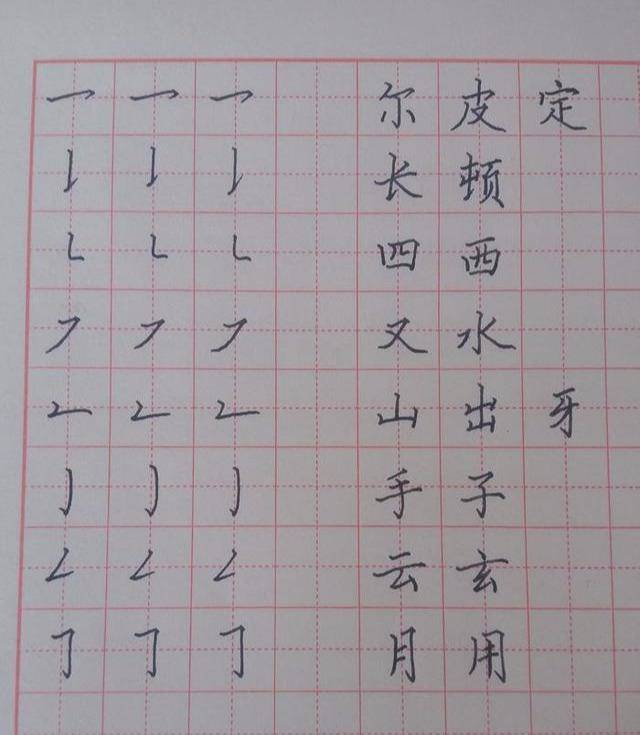 尔 皮 定
长 顿
四 西
又 水
山 出 牙
手 子
云 玄
月 用